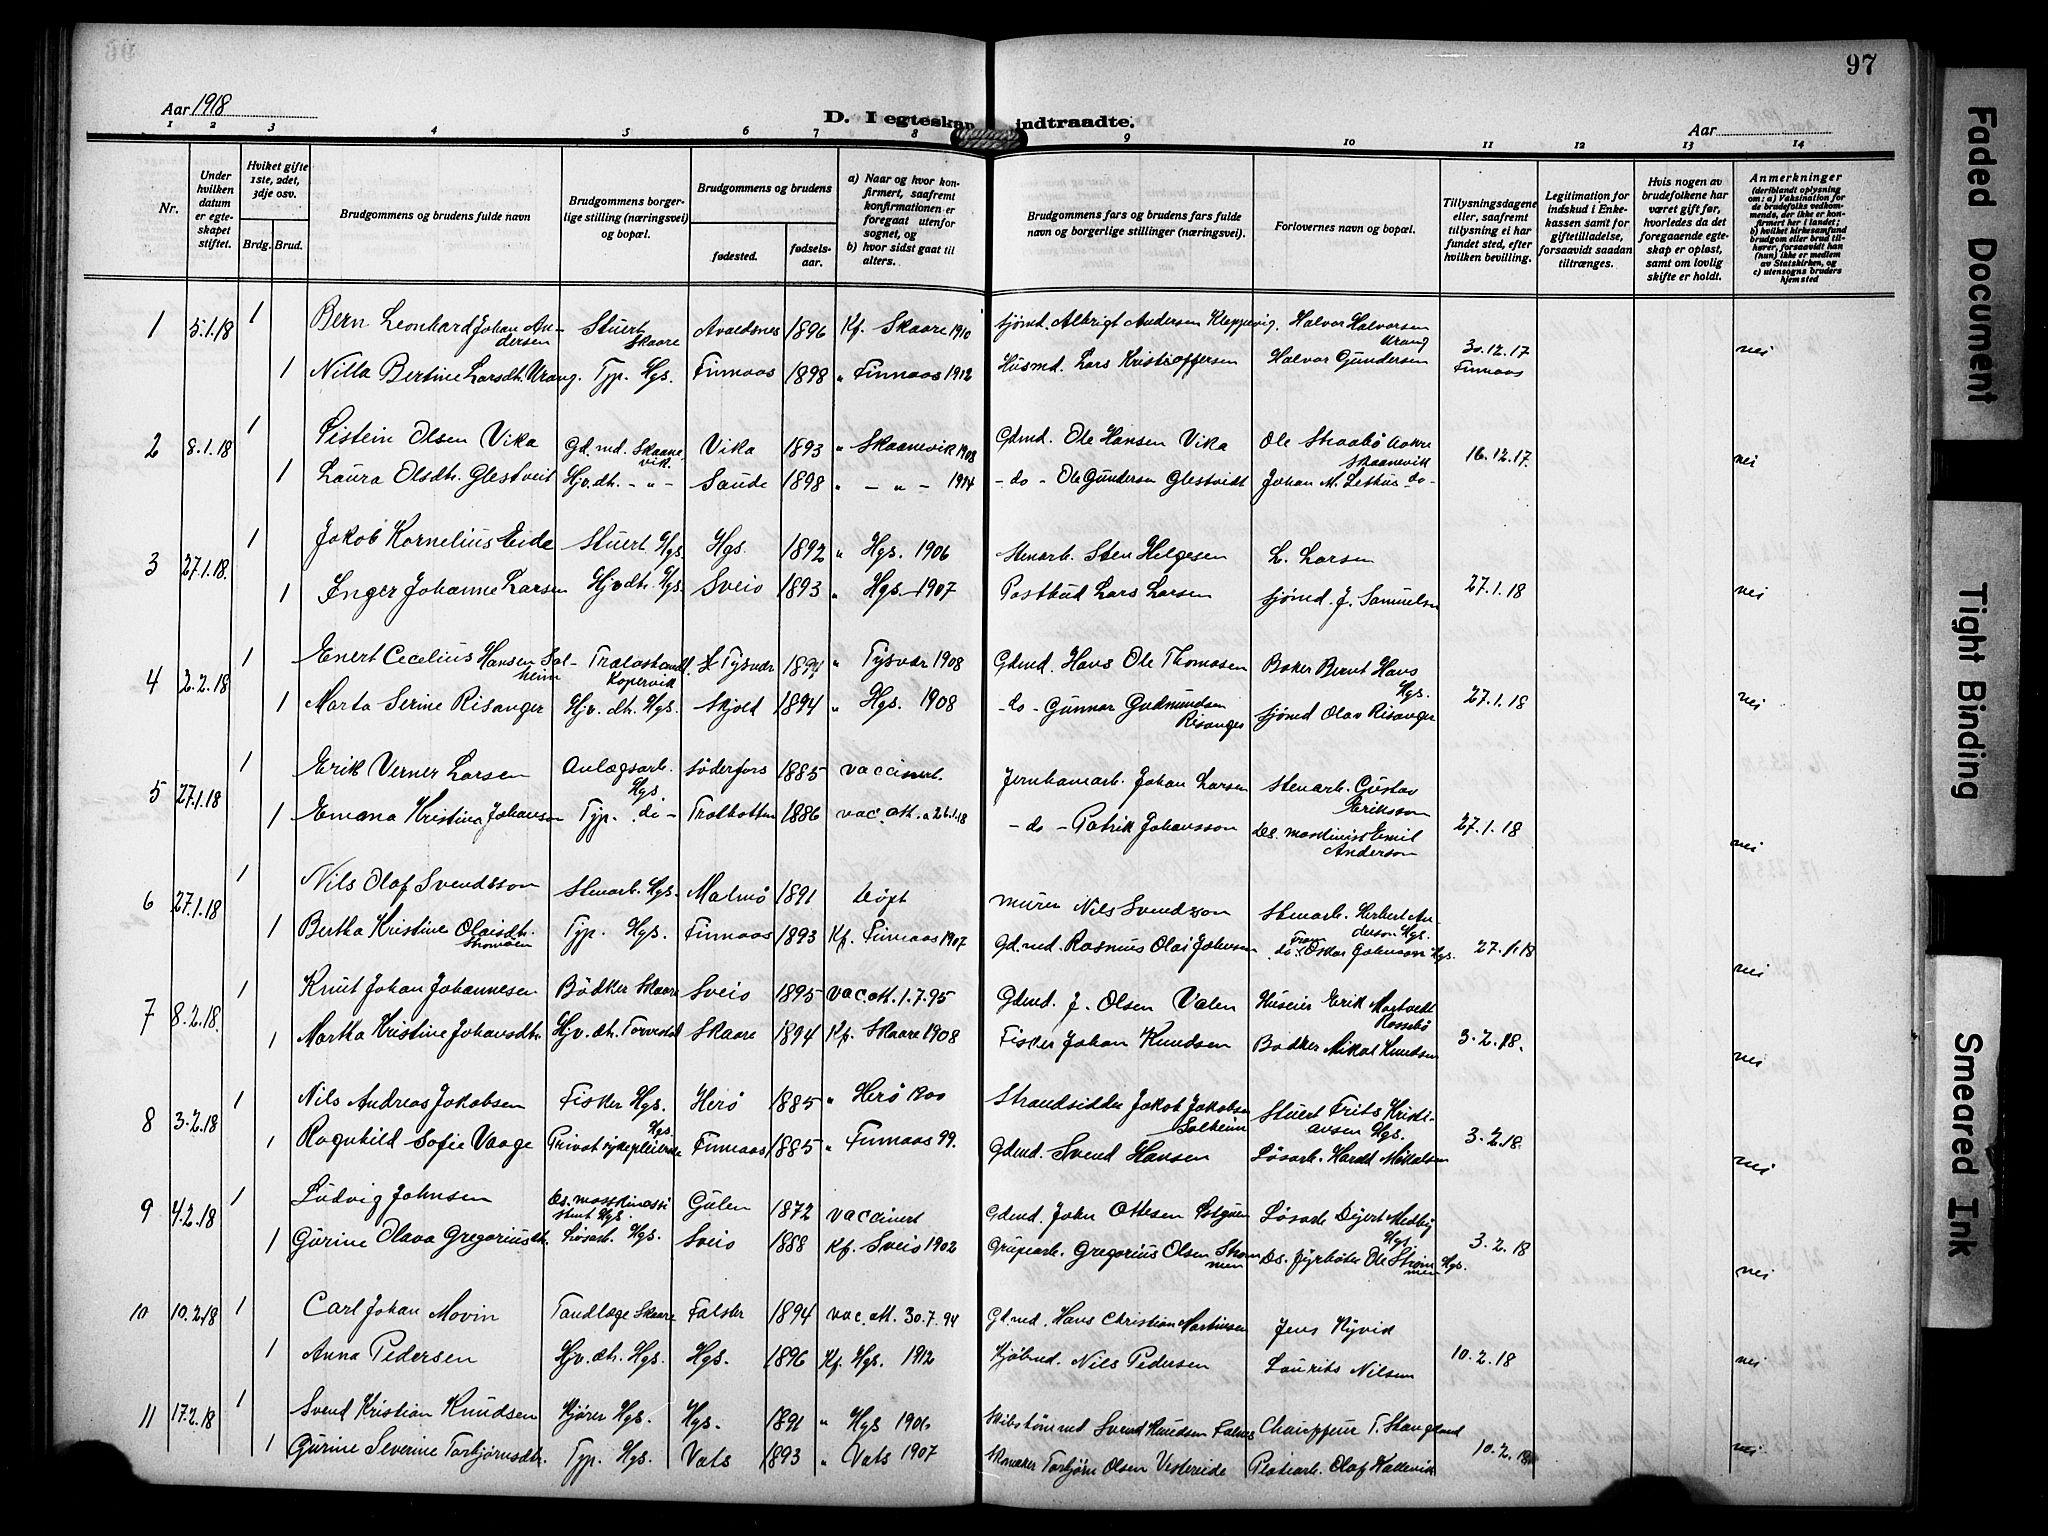 97
Aar 1918
D. I egteskap indtraadte.
Aar
1 2 3 4 5 6 7 8 9 10 11 12 13 14
Nr.
Under hvilken datum er egteskapet stiftet.
Hviket gifte 1ste, 2det, 3dje osv.
Brdg. Brud.
Brudgommens og brudens fulde navn
Brudgommens borgerlige stilling (næringsvei) og bopæl.
Brudgommens og brudens
fødested. fødselsaar.
a) Naar og hvor konfirmert, saafremt konfirmationen er foregaat utenfor sognet, og
b) hvor sidst gaat til alters.
Brudgommens fars og brudens fars fulde navn og borgerlige stillinger (næringsvei).
Forlovernes navn og bopæl.
Tillysningsdagene eller, saafremt tillysning ei har fundet sted, efter hvilken bevilling.
Legitimation for indskud i Enkekassen samt for giftetilladelse, forsaavidt saadan tiltrænges.
Hvis nogen av brudefolkene har været gift før, hvorledes da det foregaaende egteskap er opløst, samt om lovlig skifte er holdt.
Anmerkninger
(deriblandt oplysning om: a) Vaksination for de brudefolks vedkommende, der ikke er konfirmert her i landet; b) hvilket kirkesamfund brudgom eller brud tilhører, forsaavidt han (hun) ikke er medlem av Statskirken, og c) utensogns bruders hjemsted
1 5.1.18 1 Bern Leonhard Johan Andersen Stuert Skaare Avaldsnes 1896 Kf. Skaare 1910 sjømd. Albrigt Andersen Kleppevig. Halvor Halvorsen Urang 30.12.17 Finnaas nei
1 Nilla Bertine Larsdt. Urang. Typ. Hgs. Finnaas 1898 " Finnaas 1912 Husmd. Lars Kristoffersen Halvor Gundersen
2 8.1.18 1 Eistein Olsen Vika Gd.md. Skaanevik. Vika 1893 " Skaanevik 1908 Gdmd. Ole Hansen Vika Ole Skaanevik 16.12.17. nei
1 Laura Olsdt. Glestveit Hjv.dt. - " - Saude 1898 " - " - 1914 - do - Ole Gundersen Glestvidt Johan M. - do -
3 27.1.18. 1 Jakob Kornelius Eide Stuert Hgs Hgs. 1892 " Hgs. 1906 Stenarb. Sten Helgesen L. Larsen 27.1.18 nei
1 Inger Johanne Larsen Hjv.dt. Hgs Sveio 1893 " Hgs. 1907 Postbud Lars Larsen sjømd. J. Samuelsen
4 2.2.18 1 Enert Cecelius Hansen Solheim Kopervik Tysvær 1894 " Tysvær 1908 Gdmd Hans Ole Thomasen Baker Bernt Hans Hgs. 27.1.18 nei
1 Marta Serine Risanger Hjv. dt. Hgs. Skjold 1894 " Hgs. 1908 - do - Gunnar Gudmundsen Risanger sjømd Olav Risanger
5 27.1.18 1 Erik Verner Larsen Anlægsarb. Hgs Söderfors 1885 vaccinert. Johan Larsen Stenarb. Gustav Erikson 27.1.18 nei
1 Emana Kristina Johanson Typ. do - 1886 vac. att. - do - Patrik Johansson Ds. maskinist Emil Anderson
6 27.1.18 1 Nils Olaf Svendsson Stenarb. Hgs. Malmø 1891 døpt murer Nils Svendsson Stenarb. Herbert Anderson Hgs. 27.1.18 nei
1 Bertha Kristine Olaisdt. Typ. Hgs. Finnaas 1893 Kf. Finnaas 1907 Gd.md. Rasmus Olai Johnsen Oskar Johnson Hgs.
7 8.2.18. 1 Knut Johan Johannesen Bødker Skaare Sveio 1895 vac. att. 1.7.95 Gdmd. J. Olsen Valen Huseier Erik Rossebø 3.2.18. nei
1 Martha Kristine Johansdt. Hjv. dt. Torvestad Skaare 1894 Kf. Skaare 1908 Fisker Johan Knudsen Bødker Nikal Knudsen
8 3.2.18 1 Nils Andreas Jakobsen Fisker Hgs. Herø 1885 " Herø 1900 Strandsidder Jakob Jakobsen Solheim Stuert Frits Kristiansen Hgs. 3.2.18. nei
1 Ragnhild Sofie Vaage Privat sykepleierske Hgs Finnaas 1885 " Finnaas 99. Gdmd. Svend Hansen Løsarb.
9 4.2.18 1 Ludvig Johnsen Ds. maskinassistent Hgs. Gulen 1872 vaccinert Gdmd. John Ottesen Løsarb Medby Hgs. 3.2.18 nei
1 Gurine Olava Gregoriusdt. Løsarb. Hgs. Sveio 1888 Kf. Sveio 1902 Grupearb. Gregorius Olsen Strømmen Ds. fyrbøter Ole Strømmen Hgs.
10 10.2.18 1 Carl Johan Movin Tandlæge Skaare Falster 1894 vac. att. 30.7.94 Gd.md. Hans Christian Martinsen Jens 10.2.18 nei
1 Anna Pedersen Hjv. dt. Hgs. Hgs. 1896 Kf. Hgs. 1912 Kjøbmd. Nils Pedersen Laurits Nilsen
11 17.2.18 1 Svend Kristian Knudsen Kjører Hgs. Hgs. 1891 " Hgs 1906 Skibstømmd Svend Knudsen Chauffeur T. Stangeland 10.2.18 nei
1 Gurine Severine Torbjørnsdt. Typ. Hgs. Vats 1893 " Vats 1907 Torbjørn Olsen Vestereide Olaf Kallevik
Faded Document
Tight Binding
Smeared Ink